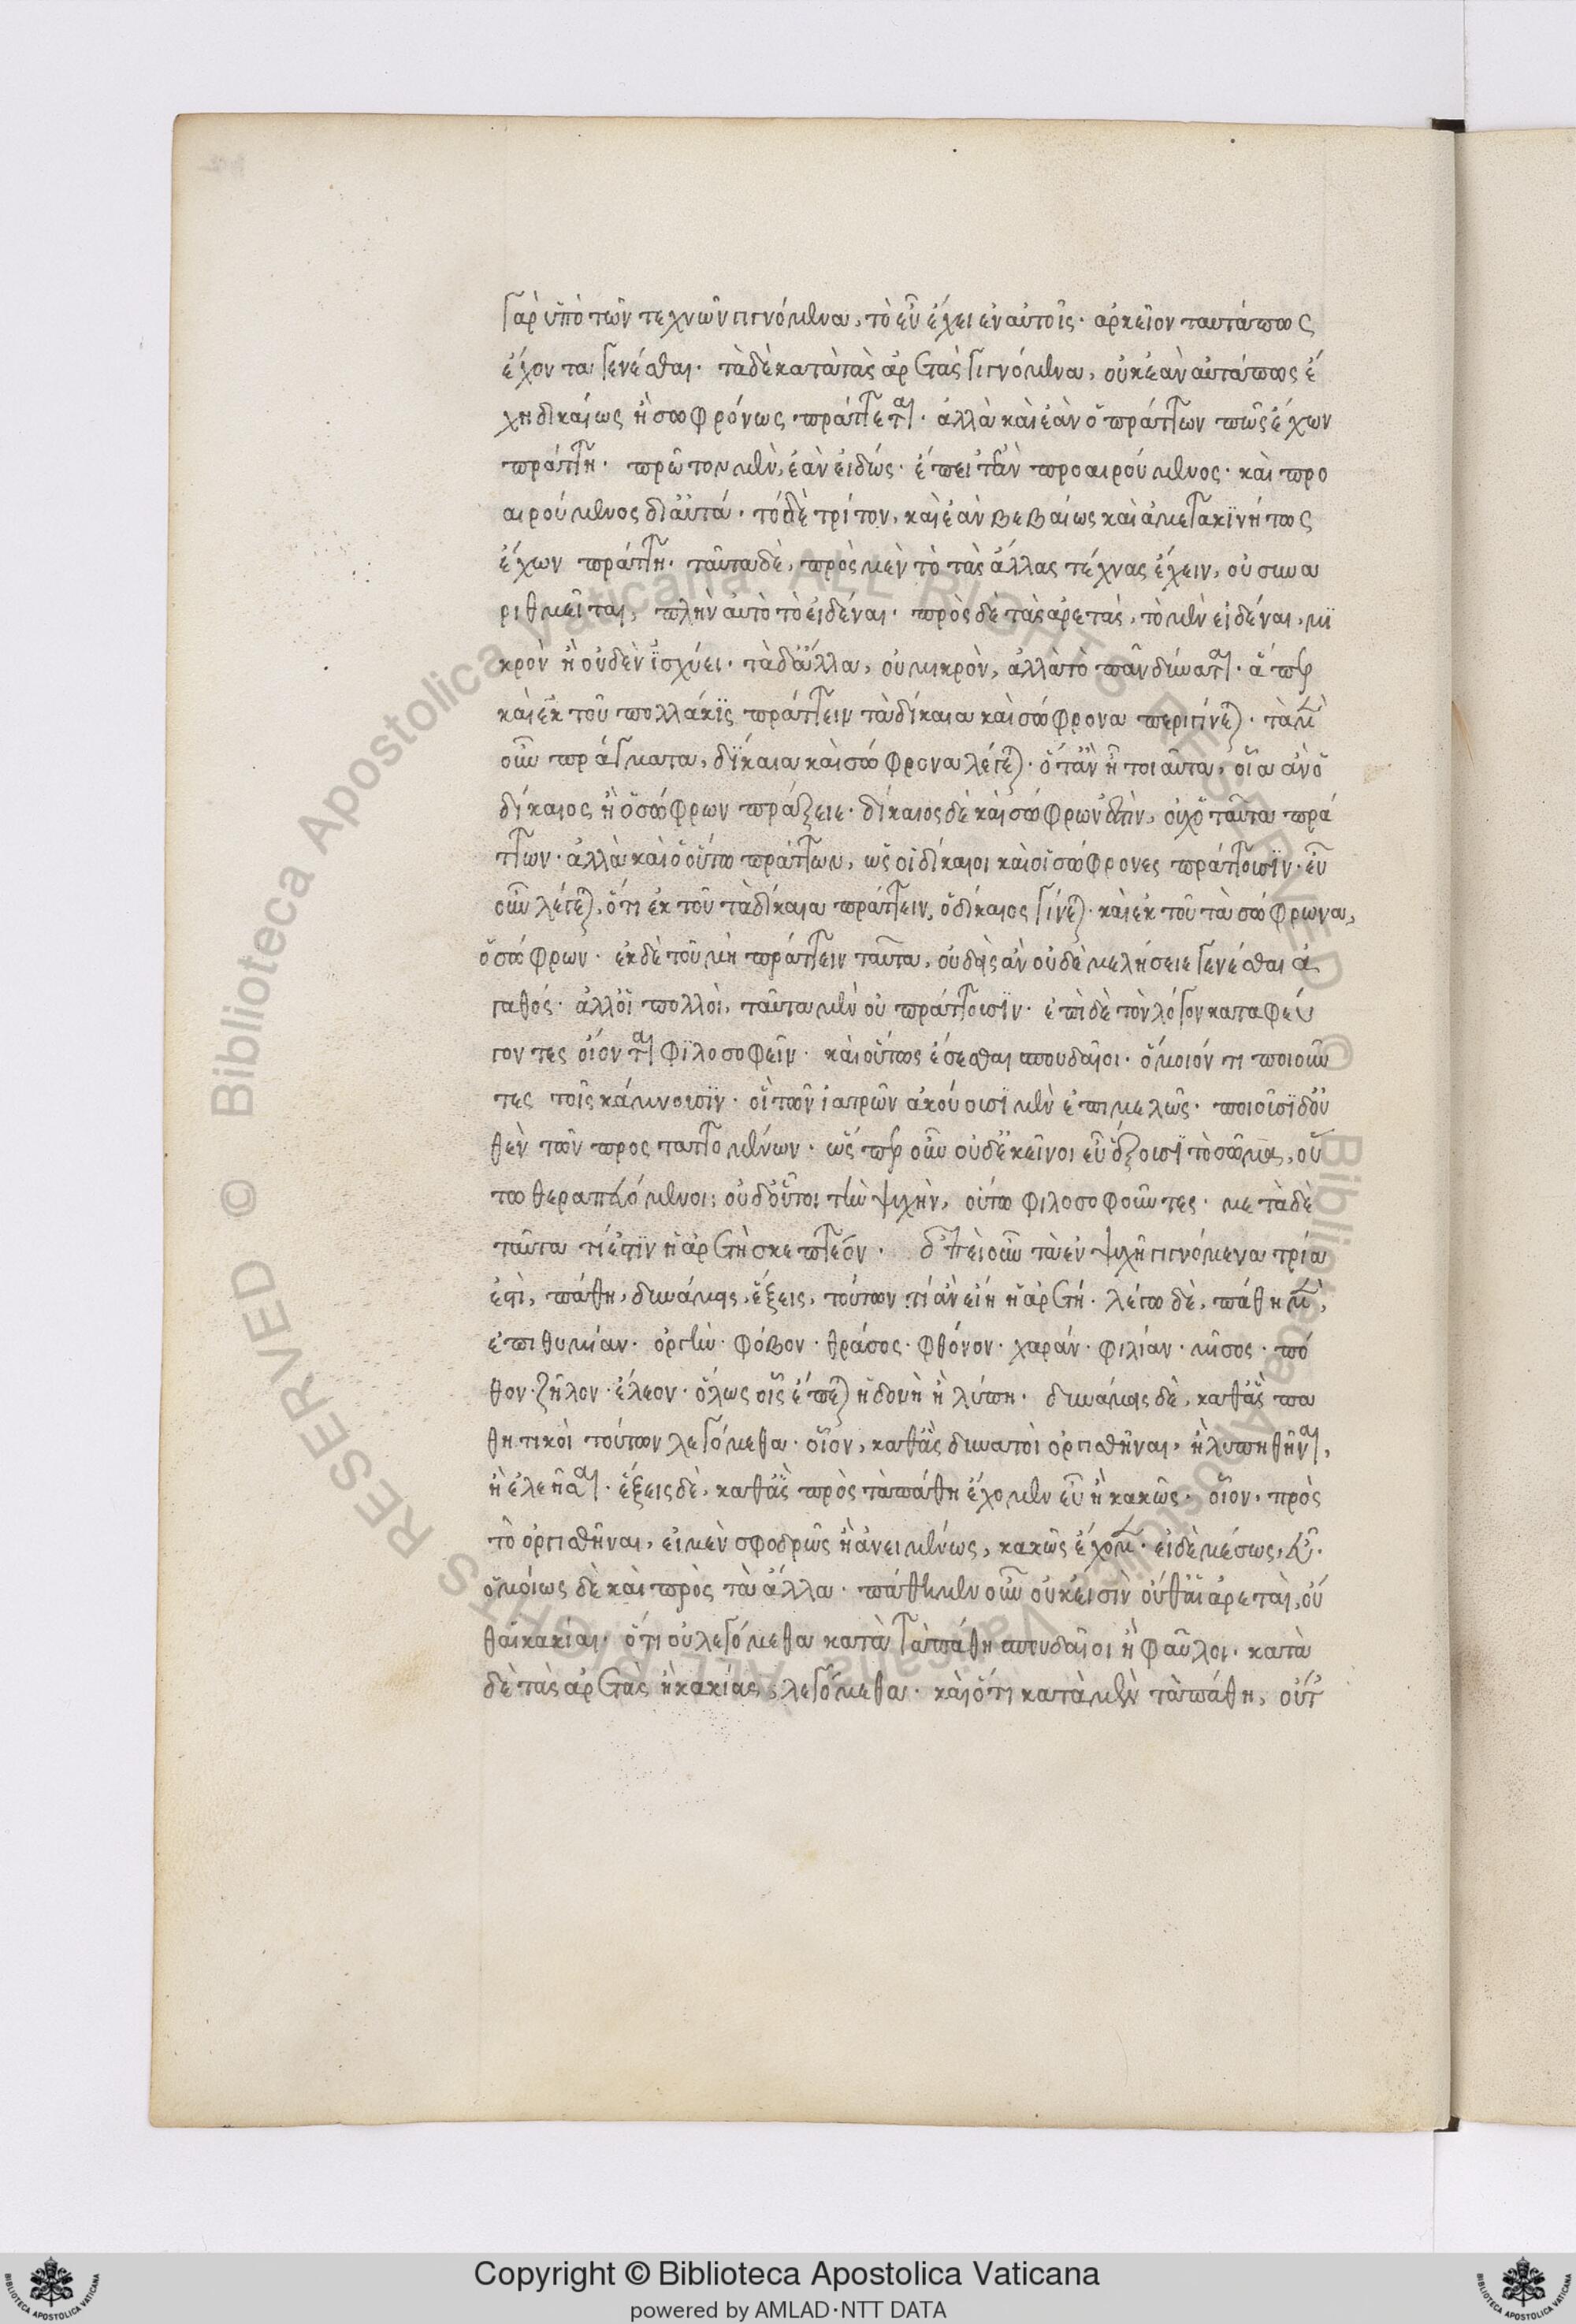 γὰρ ὑπὸ τῶν τεχνῶν γιγνόμενα, τὸ εὖ ἔχει ἐν αὐτοῖς· ἀρκεῖ οὖν ταῦτά πως
ἔχοντα γενέσθαι· τὰ δὲ κατὰ τὰς ἀρετὰς γιγνόμενα, οὐκ ἐὰν αὐτά πως ἔ
χη δικαίως ἢ σωφρόνως πράττεται· ἀλλὰ καὶ ἐὰν ὁ πράττων πῶς ἔχων
πράττη· πρῶτον μὲν, ἐὰν εἰδώς· ἔπειτ' ἐὰν προαιρούμενος· καὶ προ
αιρούμενος δι' αὐτά· τὸ δὲ τρίτον, καὶ ἐὰν βεβαίως καὶ ἀμετακϊνήτως
ἔχων πράττη· ταῦτα δὲ, πρὸς μὲν τὸ τὰς ἄλλας τέχνας ἔχειν, οὐ συνα
ριθμεῖται, πλὴν αὐτὸ τὸ εἰδέναι· πρὸς δὲ τὰς ἀρετὰς, τὸ μὲν εἰδέναι, μϊ
κρὸν ἢ οὐδὲν ϊσχύει· τὰ δ' ἄλλα, οὐ μικρὸν, ἀλλὰ τὸ πᾶν δύναται· ἅπερ
καὶ ἐκ τοῦ πολλάκϊς πράττειν τὰ δίκαια καὶ σώφρονα περιγίνεται· τὰ μὲν
οὖν πράγματα, δΐκαια καὶ σώφρονα λέγεται· ὅταν ἦ τοιαῦτα, οἷα ἂν ὁ
δίκαιος ἢ ὁ σώφρων πράξειε· δίκαιος δὲ καὶ σώφρων ἐστὶν, οὐχ ὁ ταῦτα πρά
ττων· ἀλλὰ καὶ ὁ οὕτω πράττων, ὡς οἱ δίκαιοι καὶ οἱ σώφρονες πράττουσϊν· εὖ
οὖν λέγεται, ὅτι ἐκ τοῦ τὰ δίκαια πράττειν, ὁ δίκαιος γίνεται· καὶ ἐκ τοῦ τὰ σώφρωνα,
ὁ σώφρων· ἐκ δὲ τοῦ μὴ πράττειν ταῦτα, οὐδεὶς ἂν οὐδὲ μελήσειε γενέσθαι ἀ
γαθός· ἀλλ' οἱ πολλοὶ, ταῦτα μὲν οὐ πράττουσϊν· ἐπὶ δὲ τὸν λόγον καταφεύ
γοντες οἴονται φϊλοσοφεῖν· καὶ οὕτως ἔσεσθαι σπουδαῖοι· ὅμοιόν τι ποιοῦν
τες τοῖς κάμνουσϊν· οἳ τῶν ἰατρῶν ἀκούουσϊ μὲν ἐπιμελῶς· ποιοῦσϊ δ' οὐ
θὲν τῶν προσταττομένων· ὥσπερ οὖν οὐδ' ἐκεῖνοι εὖ ἕξουσϊ τὸ σῶμα, οὕ
τω θεραπευόμενοι; οὐδ' οὗτοι τὴν ψυχὴν, οὕτω φιλοσοφοῦντες· μετὰ δὲ
ταῦτα τί ἐστϊν ἡ ἀρετὴ σκεπτέον· ἐπεὶ οὖν τὰ ἐν ψυχῆ γιγνόμενα τρία
ἐστὶ, πάθη, δυνάμεις, ἕξεις, τούτων τί ἂν εἴη ἡ ἀρετή· λέγω δὲ, πάθη μὲν,
ἐπιθυμίαν· ὀργὴν· φόβον· θράσος· φθόνον· χαράν· φιλίαν· μῖσος· πό
θον· ζῆλον· ἔλεον· ὅλως οἷς ἕπεται ἡδονὴ ἢ λύπη· δυνάμεις δὲ, καθ' ἃς πα
θητικοὶ τούτων λεγόμεθα· οἷον, καθ' ἃς δυνατοὶ ὀργισθῆναι, ἢ λυπηθῆναι,
ἢ ἐλεῆσαι· ἕξεις δὲ, καθ' ἃς πρὸς τὰ πάθη ἔχομεν εὖ ἢ κακῶς· οἷον, πρὸς
τὸ ὀργισθῆναι, εἰ μὲν σφοδρῶς ἢ ἀνειμένως, κακῶς ἔχομεν· εἰ δὲ μέσως, εὖ·
ὁμοίως δὲ καὶ πρὸς τὰ ἄλλα· πάθη μὲν οὖν οὐκ εἰσὶν οὔθ' αἱ ἀρεταὶ, οὔ
θ' αἱ κακίαι· ὅτι οὐ λεγόμεθα κατὰ τὰ πάθη σπουδαῖοι ἢ φαῦλοι· κατὰ
δὲ τὰς ἀρετὰς ἢ κακίας, λεγόμεθα· καὶ ὅτι κατὰ μὲν τὰ πάθη, οὔτ
Copyright © Biblioteca Apostolica Vaticana
powered by AMLAD·NTT DATA